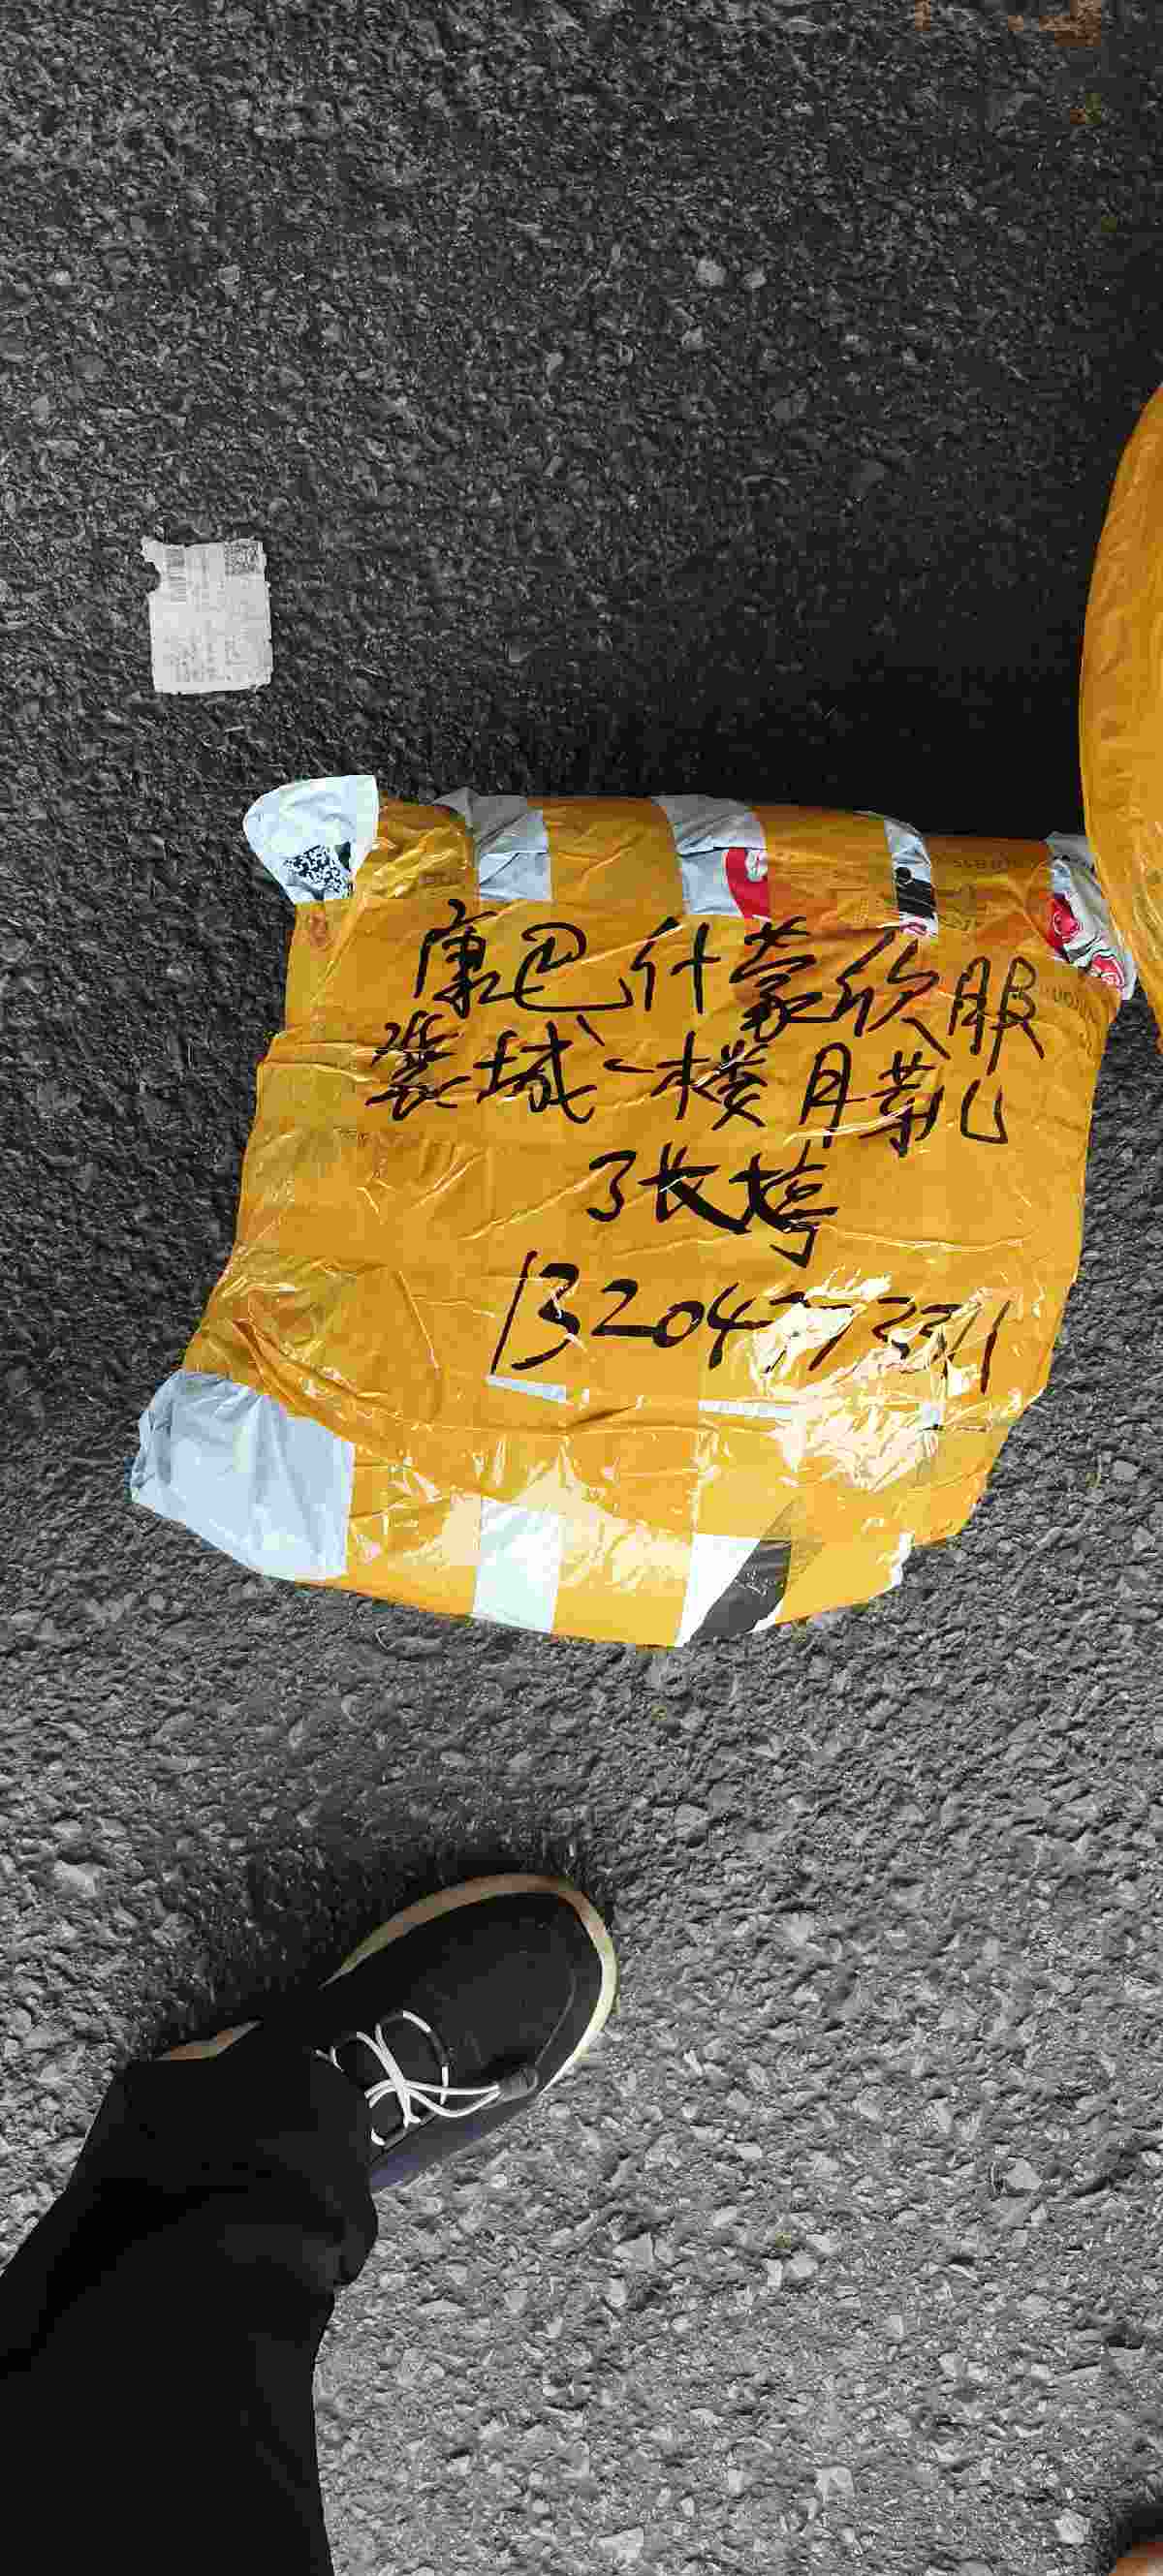 康巴什蒙欣服
装城一楼月芽儿
张婷
13204772271